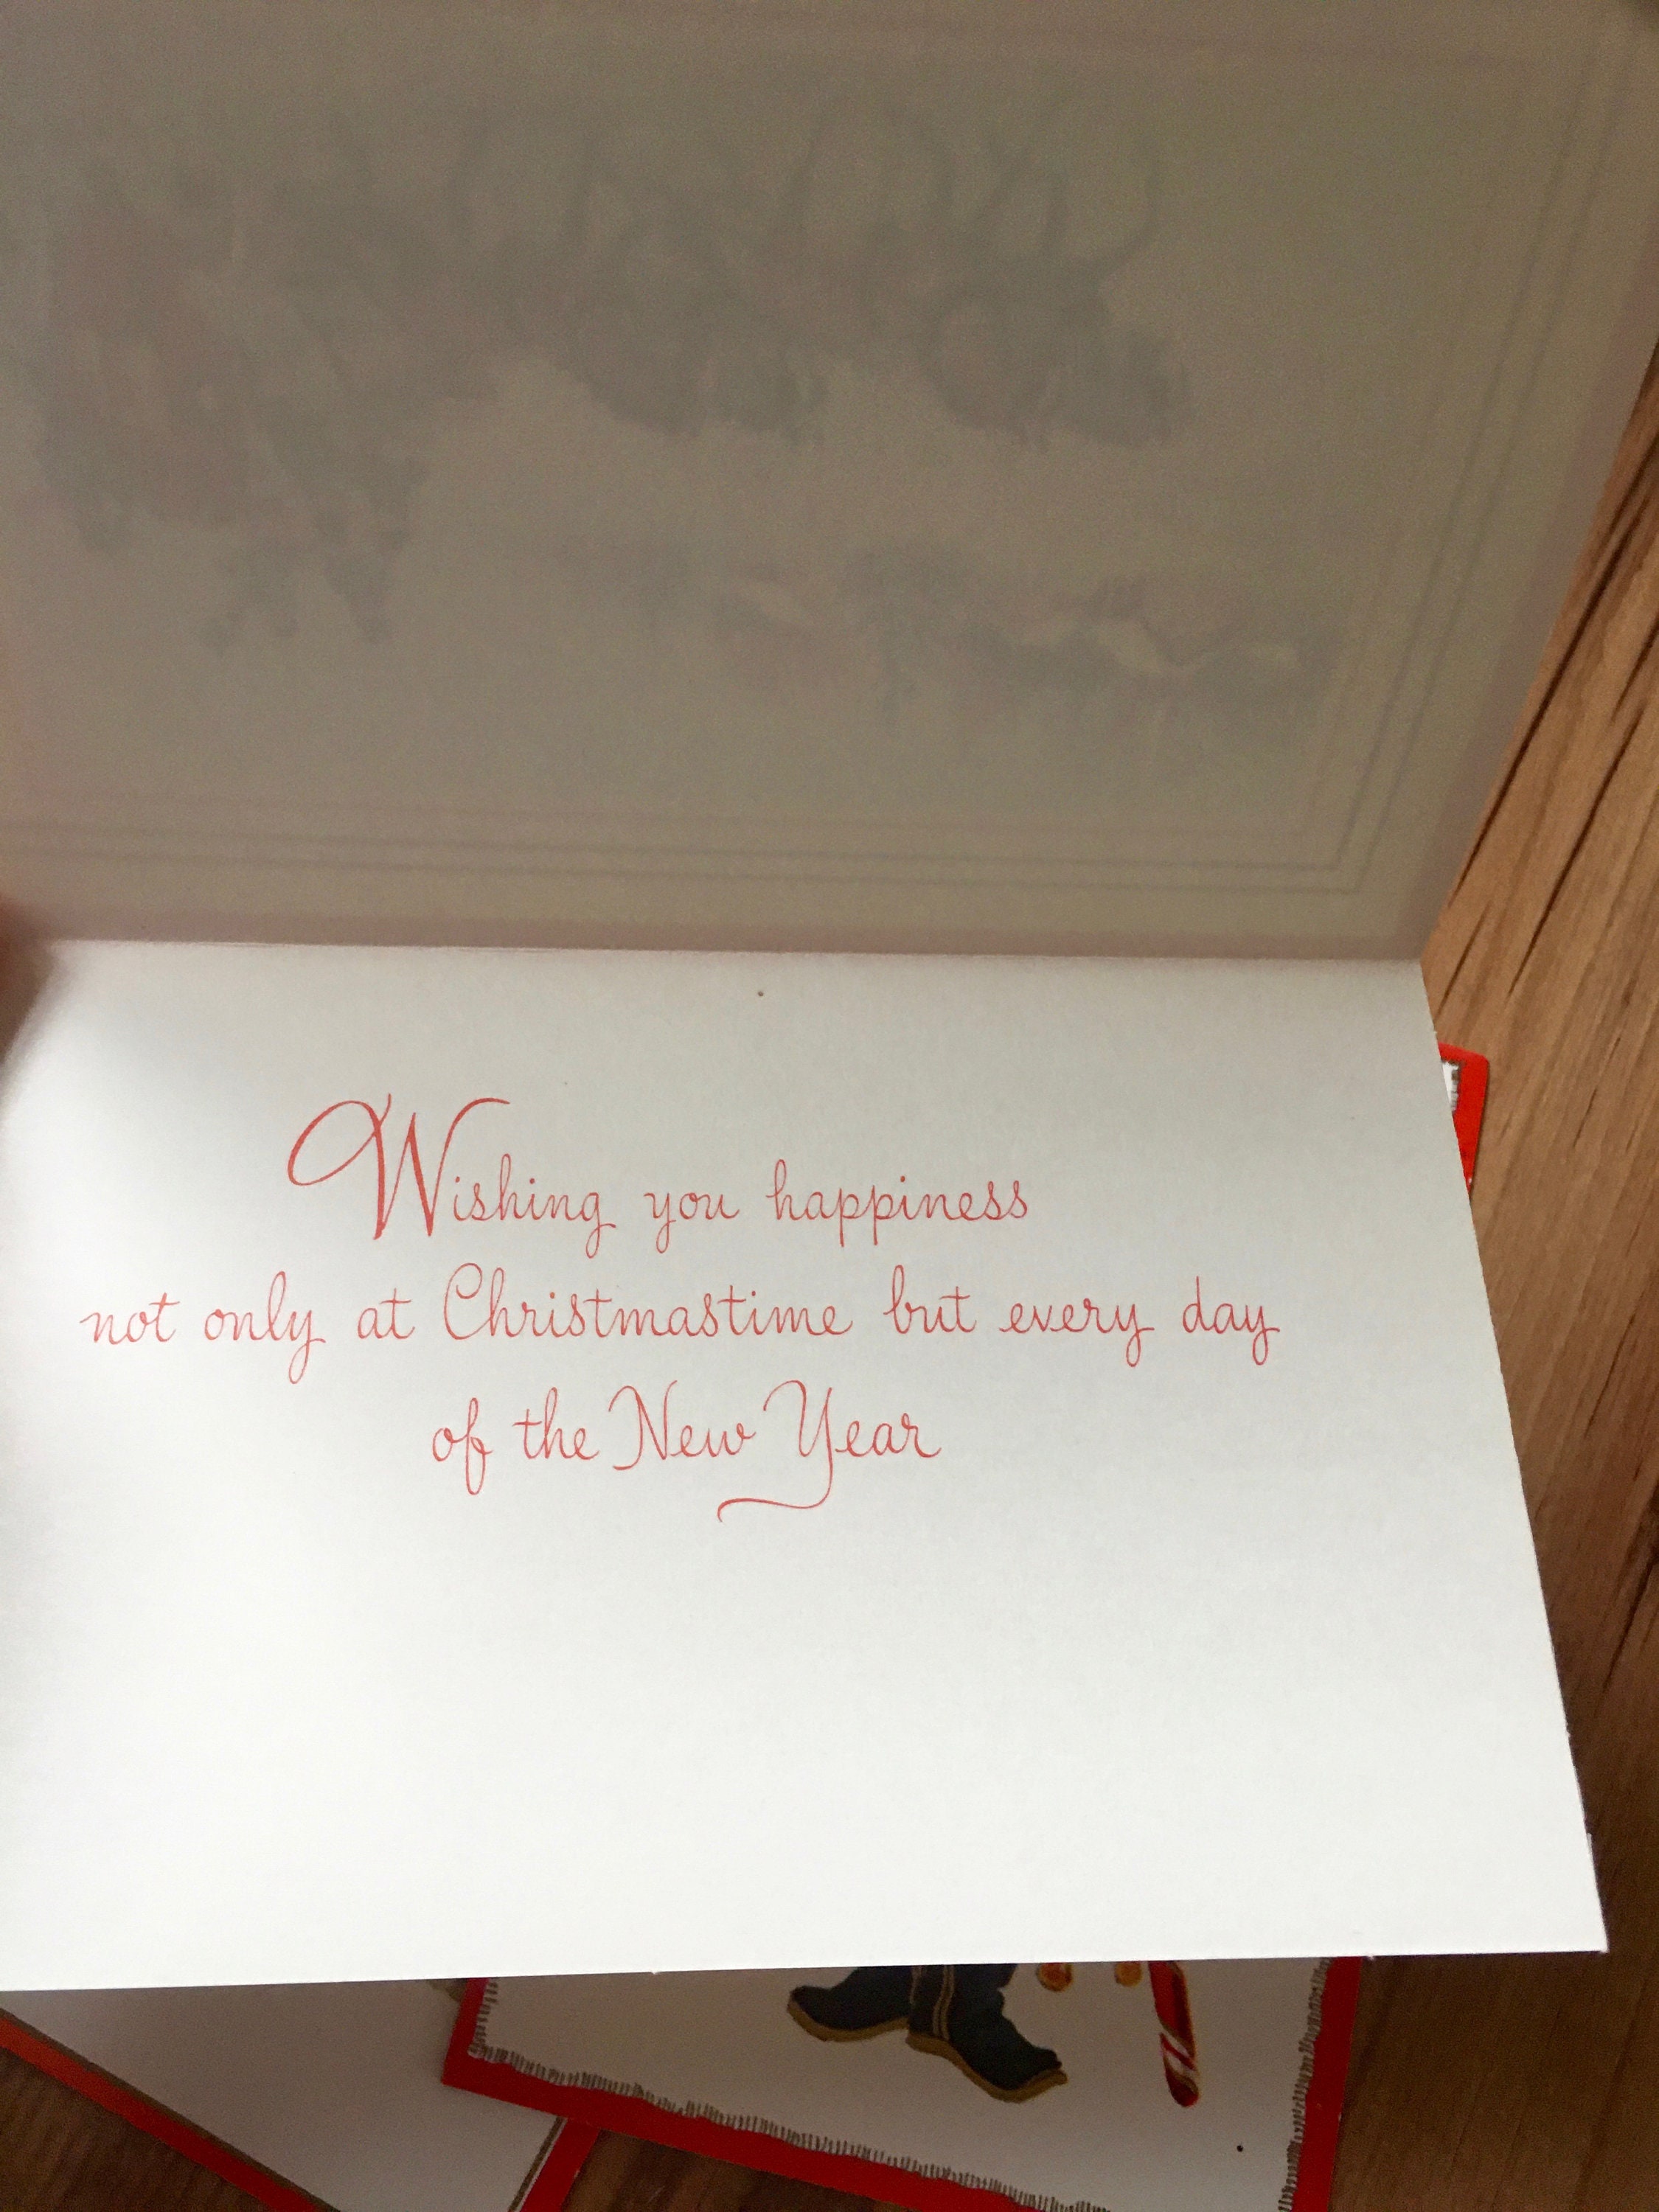 Wishing you happiness
not only at Christmastime but every day
of the New Year